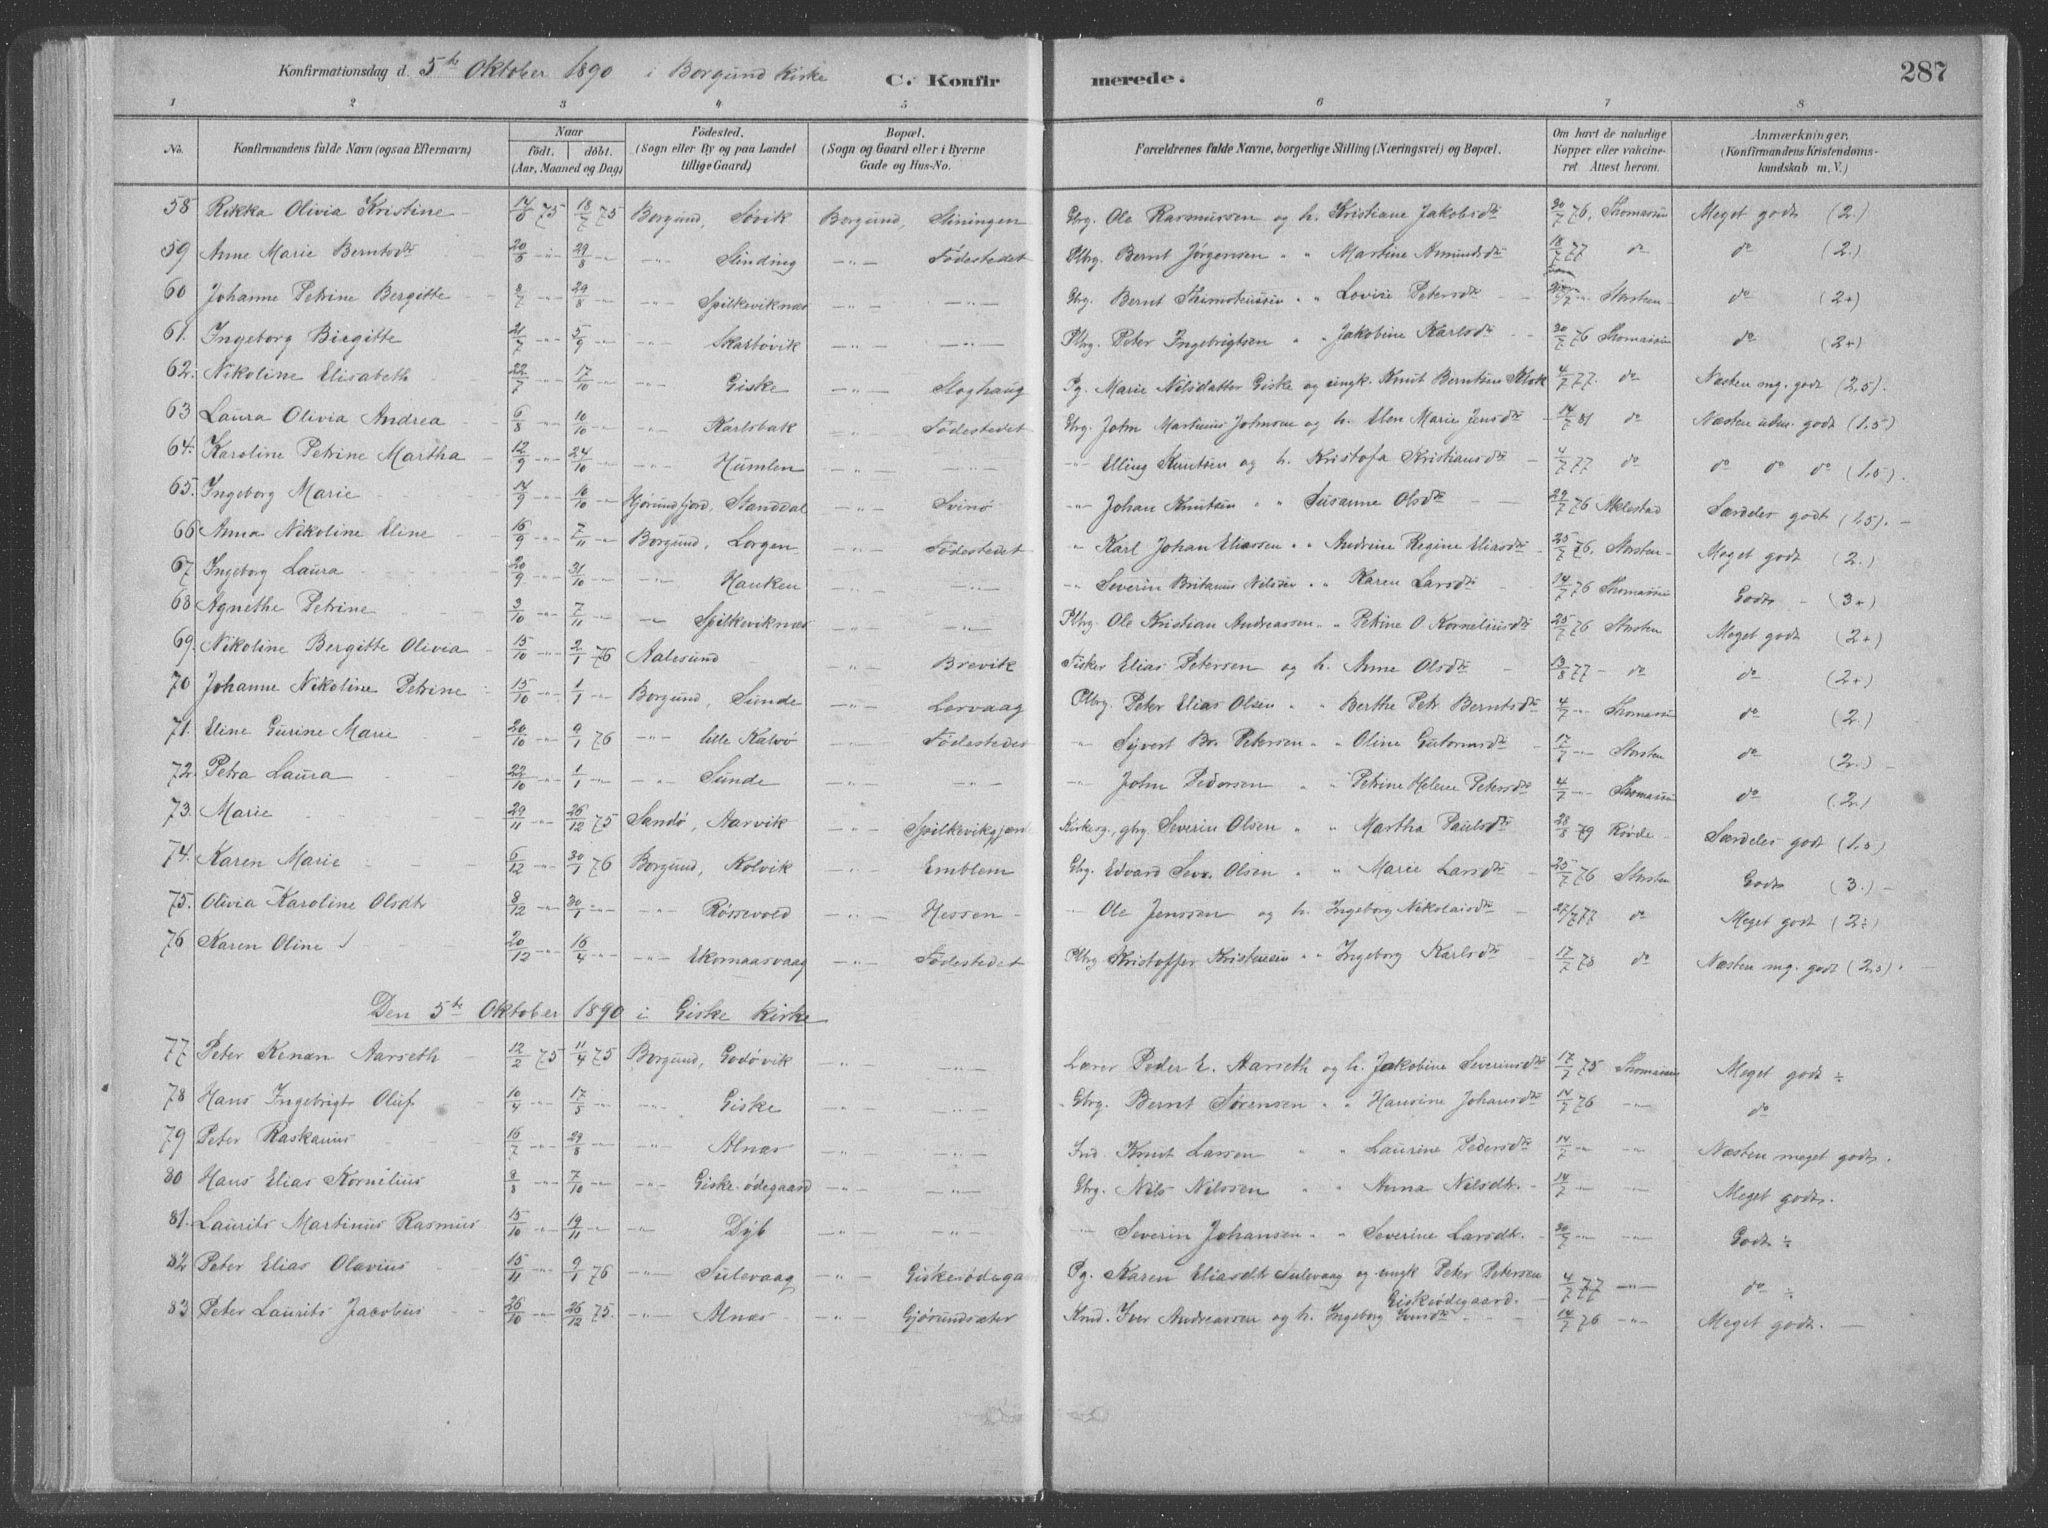 Konfirmationsdag d. 5te Oktober 1890 i Borgund Kirke C. Konfirmerede. 287
1 2 3 4 5 6 7 8
No. Konfirmandens fulde Navn (ogsaa Efternavn) Naar født. døbt. (Aar, Maaned og Dag) Fødested. (Sogn eller By og paa Landet tillige Gaard) Bopæl. (Sogn og Gaard eller i Byerne Gade og Hus-No. Forældrenes fulde Navne, borgerlige Stilling (Næringsvei) og Bopæl. Om havt de naturlige Kopper eller vakcineret Attest herom. Anmærkninger. (Konfirmandens Kristendomskundskab m. V.)
58 Rikka Olivia Kristine 14/6 75 18/7 75 Borgund, Søvik Borgund, Sliningen Gbrg. Ole Rasmussen og h. Kristiane Jakobsdtr 20/7 76, Thomassen Meget godt (2.)
59 Anne Marie Berntsdtr 20/6 -"- 29/8 -"- -"- Slinding -"- Fødestedet Plbrg. Bernt Jørgensen " " Martine Amundsdtr 18/7 77 do do (2.)
60 Johanne Petrine Bergitte 8/7 -"- 29/8 -"- -"- Spilkeviknæs -"- -"- Gbrg. Bernt " " Lovise Petersdtr Storsten do (2+)
61. Ingeborg Birgitte 21/7 -"- 5/9 -"- -"- Skarbøvik -"- -"- Plbrg. Peter Ingebrigtsen " " Jakobine Karlsdtr 20/7 76 Thomassen do (2+)
62. Nikoline Elisabeth 22/7 -"- 17/10 -"- -"- Giske -"- Sloghaug Pg. Marie Nilsdatter Giske og ungk. Knut Berntsen 4/7 77. do Næsten mg. godt (2,5).
63 Laura Olivia Andrea 6/8 -"- 10/10 -"- -"- Karlsbak -"- Fødestedet Gbrg. John Martinus Johnsen og h. Elen Marie Jensdtr 14/7 81 do Næsten udm. godt (1,5)
64. Karoline Petrine Martha 12/9 -"- 24/10 -"- -"- Humlen -"- -"- -"- Elling Knutsen og h. Kristofa Kristiansdtr 4/7 77 do do do do (1,5).
65. Ingeborg Marie 14/9 -"- 10/10 -"- Hjørundfjord, Standdal -"- Svinø -"- Johan Knutsen " " Susanne Olsdtr 29/7 76 Melestad Særdeles godt (1,5).
66 Anna Nikoline Eline 16/9 -"- 7/11 -"- Borgund, Lorgen -"- Fødestedet " Karl Johan Eliassen " " Andrine Regine Eliasdtr 25/7 76. Storsten Meget godt (2.)
67 Ingeborg Laura 20/9 -"- 31/10 -"- -"- Hauken -"- -"- -"- Severin Britanus Nilssen " " Karen Larsdtr 14/7 76 Thomassen Godt (3+)
68 Agnethe Petrine 3/10 -"- 7/11 -"- -"- Spilkeviknæs -"- -"- Plbrg. Ole Kristian Andreassen " " Petrine O. Korneliusdtr 25/7 76 Storsten Meget godt (2+)
69. Nikoline Bergitte Olivia 15/10 -"- 2/1 76 Aalesund -"- Brevik Fisker Elias Petersen og h. Anne Olsdtr 13/8 77 do do (2+)
70 Johanne Nikoline Petrine 15/10 -"- 1/1 -"- Borgund, Sunde -"- Lervaag Plbrg. Peter Elias Olsen " " Berthe Petr. Berntsdtr 4/7 -"- Thomassen do (2.)
71. Eline Gurine Marie 20/10 -"- 9/1 76 -"- lille Kalvø -"- Fødestedet " Syvert Br. Petersen " " Oline Gutormsdtr 17/7 -"- Storsten do (2.)
72. Petra Laura 22/10 -"- 1/1 -"- -"- Sunde -"- -"- -"- John Pedersen " " Petrine Helene Petersdtr 4/7 -"- Thomassen do (2.)
73. Marie 29/11 -"- 26/12 75 Sandø, Aarvik -"- Spilkevikgjærd Kirkesg., gbrg. Severin Olsen " " Martha Paulsdtr 28/8 79 Røvde Særdeles godt (1,5)
74. Karen Marie 6/12 -"- 30/1 76 Borgund, Kolvik -"- Emblem Gbrg. Edvard Sev. Olsen " " Marie Larsdtr 25/7 76 Storsten Godt (3.)
75. Olivia Karoline Olsdtr 8/12 -"- 30/1 -"- -"- Røssevold -"- Hessen -"- Ole Jenssen og h. Ingeborg Nikolaisdtr 27/7 77 do Meget godt (2÷)
76 Karen Oline 20/12 -"- 16/4 -"- -"- Ekornaasvaag -"- Fødestedet Plbrg Kristoffer Kristensen " " Ingeborg Karlsdtr 17/7 78 do Næsten mg. godt (2,5).
Den 5te Oktober 1890 i Giske Kirke
77 Peter Kenan Aarseth 12/2 75 11/4 75 Borgund, Godøvik -"- -"- Lærer Peder E. Aarseth og h. Jakobine Severinsdtr 17/7 75 Thomassen Meget godt ÷
78 Hans Ingebrigt Oluf 10/4 -"- 17/5 -"- -"- Giske -"- -"- Gbrg. Bernt Sørensen " " Hansine Johansdtr 14/7 76 -"- do
79 Peter Raskanus 16/7 -"- 29/8 -"- -"- Alnæs -"- -"- Ind. Knut Larsen " " Laurine Pedersdtr 14/7 -"- -"- Næsten meget godt.
80 Hans Elias Kornelius 8/8 -"- 7/10 -"- -"- Giske-ødegaard -"- -"- Gbrg. Nils Nilssen " " Anna Nilsdtr. 14/7 -"- -"- Meget godt.
81. Laurits Martinus Rasmus 15/10 -"- 19/11 -"- -"- Dyb -"- -"- -"- Severin Johansen " " Severine Larsdtr. 20/7 -"- -"- Godt ÷
82 Peter Elias Olavius 15/11 -"- 9/1 76 -"- Sulevaag -"- Giskeødegaard Pg. Karen Eliasdtr Sulevaag og ungk Peter Petersen Giskeødegaard. 4/7 77 -"- do ÷
83 Peter Laurits Jacobus 26/10 -"- 26/12 75. -"- Alnæs -"- Gjørundsæter Knd. Iver Andreassen og h. Ingeborg Jensdtr 14/7 76 -"- Meget godt.